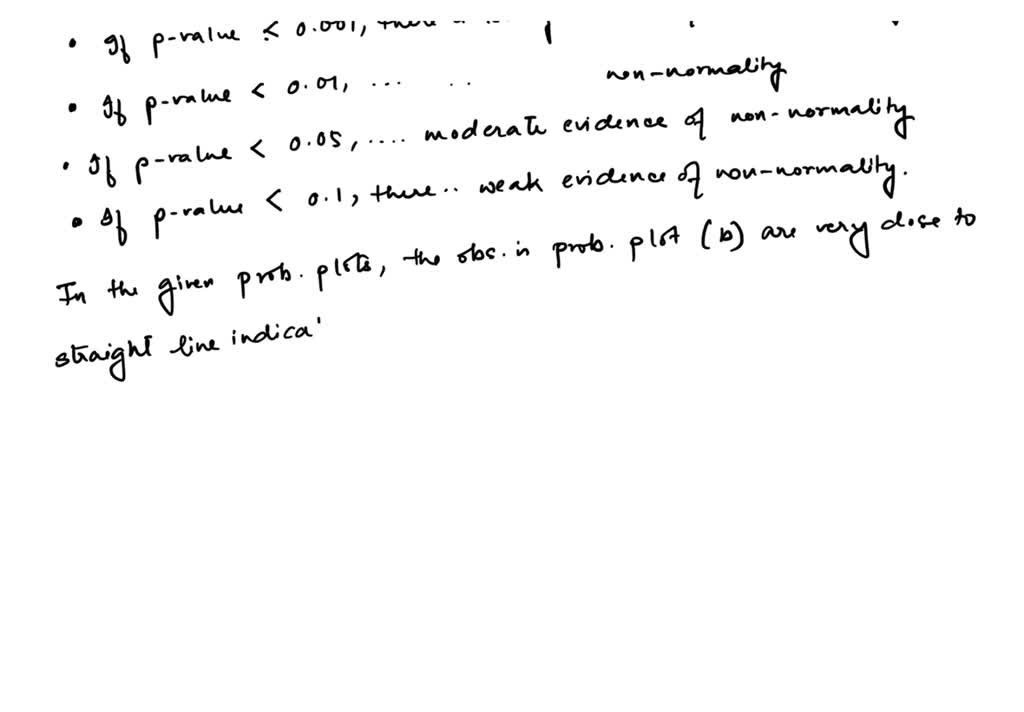 • If p-value < 0.001, there
• If p-value < 0.01, ... .. non-normality
• If p-value < 0.05, .... moderate evidence of non-normality
• If p-value < 0.1, there.. weak evidence of non-normality.
In the given prob. plots, the obs. in prob. plot (b) are very close to
straight line indica